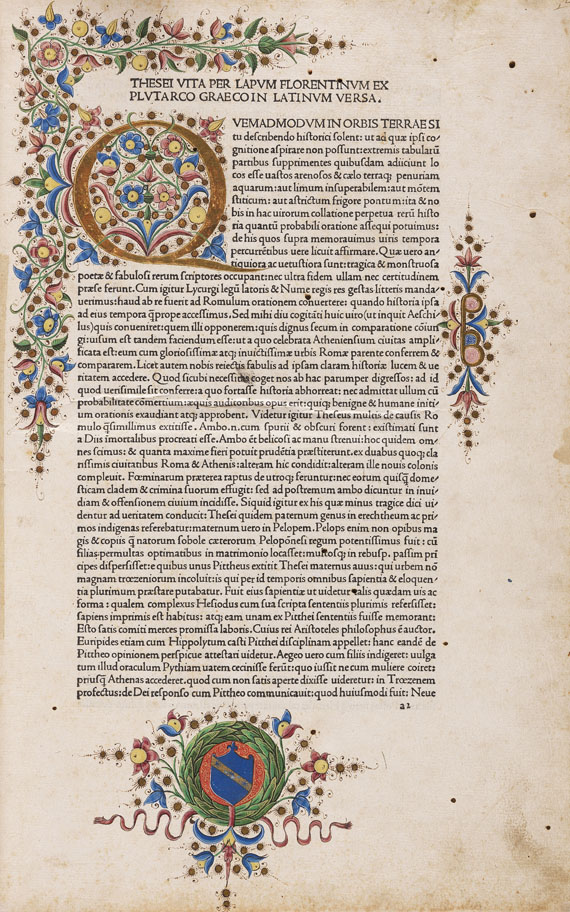 THESEI VITA PER LAPVM FLORENTINVM EX
PLVTARCO GRAECO IN LATINVM VERSA.
QVEMADMODVM IN ORBIS TERRAE SI
tu describendo historici solent: ut ad quæ ipsi co/
gnitione aspirare non possunt: extremis tabularū
partibus supprimentes quibusdam adiiciunt lo
cos esse uastos arenosos & cælo terraq; penuriam
aquarum: aut limum insuperabilem: aut mōtem
sticticum: aut astrictum frigore pontum: ita & no
bis in hac uirorum collatione perpetua rerū histo
ria quantū probabili oratione assequi potuimus:
de his quos supra memorauimus uiris tempora
percurrētibus uere licuit affirmare. Quæ uero an/
tiquiora ac uetustiora sunt: tragica & monstruosa
poetæ & fabulosi rerum scriptores occupant: nec ultra fidem ullam nec certitudinem
præse ferunt. Cum igitur Lycurgi legū latoris & Numę regis res gestas litteris manda/
uerimus: haud ab re fuerit ad Romulum orationem cōuertere: quando historia ipsa
ad eius tempora q̃ prope accessimus. Sed mihi diu cogitāti huic uiro (ut inquit Aeschi/
lus) quis conueniret: quem illi opponerem: quis dignus secum in comparatione cōiun
gi: uisum est tandem faciendum esse: ut a quo celebrata Atheniensium ciuitas ampli/
ficata est: eum cum gloriosissimæ atq; inuictissimæ urbis Romæ parente conferrem &
compararem. Licet autem nobis reiectis fabulis ad ipsam claram historiæ lucem & ue
ritatem accedere. Quod sicubi necessitas coget nos ab hac parumper digressos: ad id
quod uerisimile sit conferre: a quo fortasse historia abhorreat: nec admittat ullum cū
probabilitate cōmertium: æquis auditoribus opus erit: quiq; benigne & humane initi/
um orationis exaudiant atq; approbent. Videtur igitur Theseus multis de causis Ro
mulo q̃simillimus extitisse. Ambo.n.cum spurii & obscuri forent: existimati sunt
a Diis imortalibus procreati esse. Ambo ēt belicosi ac manu strenui: hoc quidem om/
nes scimus: & quanta maxime fieri potuit prudētia præstiterunt. ex duabus quoq; cla
rissimis ciuitatibus Roma & Athenis: alteram hic condidit: alteram ille nouis colonis
compleuit. Fœminarum præterea raptus de utroq; feruntur: nec eorum quisq̃ dome/
sticam cladem & crimina suorum effugit: sed ad postremum ambo dicuntur in inui/
diam & offensionem ciuium incidisse. Siquid igitur ex his quæ minus tragice dici ui/
dentur ad ueritatem conducit: Thesei quidem paternum genus in erechtheum ac pri/
mos indigenas referebatur: maternum uero in Pelopem. Pelops enim non opibus ma
gis & copiis q̃ natorum sobole cæterorum Pelopōnesi regum potentissimus fuit: cū
filias permultas optimatibus in matrimonio locasset: multosq; in rebusp. passim pri
cipes dispersisset: e quibus unus Pittheus extitit Thesei maternus auus: qui urbem nō
magnam trœzeniorum incoluit: is qui per id temporis omnibus sapientia & eloquen/
tia plurimum præstare putabatur. Fuit eius sapientiæ ut uidetur talis quædam uis ac
forma: qualem complexus Hesiodus cum sua scripta sententiis plurimis refersisset:
sapiens imprimis est habitus: atq; eam unam ex Pitthei sententiis fuisse memorant:
Esto satis comiti merces promissa laboris. Cuius rei Aristoteles philosophus ē auctor.
Euripides etiam cum Hippolytum casti Pitthei disciplinam appellet: hanc eandē de
Pittheo opinionem perspicue attestari uidetur. Aegeo uero cum filiis indigeret: uulga
tum illud oraculum Pythiam uatem cecinisse ferūt: quo iussit ne cum muliere coiret:
priusq̃ Athenas accederet. quod cum non satis aperte dixisse uideretur: in Trœzenem
profectus: de Dei responso cum Pittheo communicauit: quod huiusmodi fuit: Neue
a2